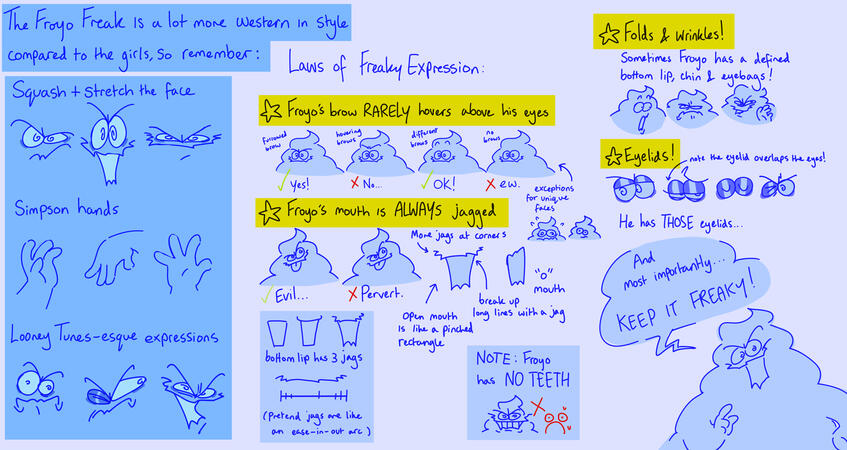 The Froyo Freak is a lot more western in style
compared to the girls, so remember:
Squash + stretch the face
Simpson hands
Looney Tunes-esque expressions
Laws of Freaky Expression:
Froyo's brow RARELY hovers above his eyes
furrowed
brow
hovering
brows
different
brows
no
brows
Yes!
No...
OK!
ew.
exceptions
for unique
faces
Froyo's mouth is ALWAYS jagged
Evil...
Pervert.
More jags at corners
Open mouth
is like a pinched
rectangle
break up
long lines with a jag
"o"
mouth
bottom lip has 3 jags
(Pretend jags are like
an ease-in-out arc)
NOTE: Froyo
has NO TEETH
Folds & Wrinkles!
Sometimes Froyo has a defined
bottom lip, chin & eyebags!
Eyelids!
note the eyelid overlaps the eyes!
He has THOSE eyelids...
And
most importantly...
KEEP IT FREAKY!